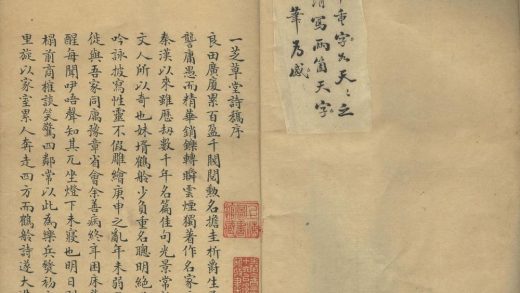 重字如天〻之
請寫兩箇天字
筆為感
一芝草堂詩稿序
良田廣廈累百盈千閥閱勲名擔圭析爵生
庸愚而精華銷鑠轉瞬雲煙獨著作名家
秦漢以來雖歷劫數千年名篇佳句光景常
文人所以奇也妹壻鶴舲少負重名聰明絕
吟詠披寫性靈不假雕繪庚申之亂年未弱
徙與吾家同寓豫章省會余善病終年困床
醒每聞咿唔聲知其兀坐燈下未寢也明日
榻前商榷談笑驚四鄰常以此為樂兵發初
里旅以家室累人奔走四方而鶴舲詩遂大